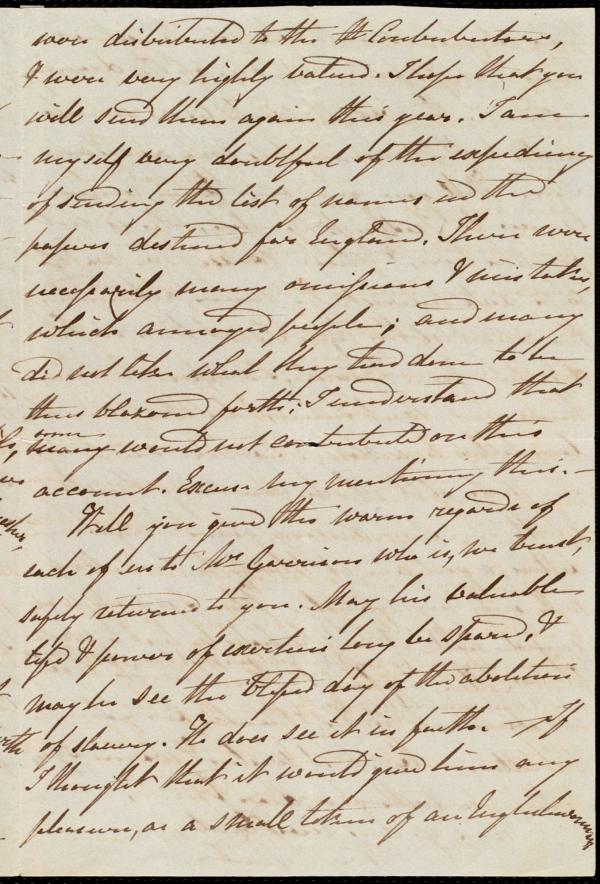 were distributed to the Contributors,
& were very highly valued. I hope that you
will send them again this year. I am
myself very doubtful of the expediency
of sending the list of names in the
papers destined for England. There were
necessarily many omissions & mistakes,
which annoyed people; and many
did not like what they had done to be
thus blazoned forth; I understand that
some
many would not contribute on this
account. Excuse my mentioning this. –
Will you give the warm regards of
each of us to Mr Garrison who is, we trust,
safely returned to you. May his valuable
life & powers of exertion long be spared, &
may he see the blessed day of the abolition
of slavery. He does see it in faith. – If
I thought that it would give him any
pleasure, as a small token of an Englishwoman's